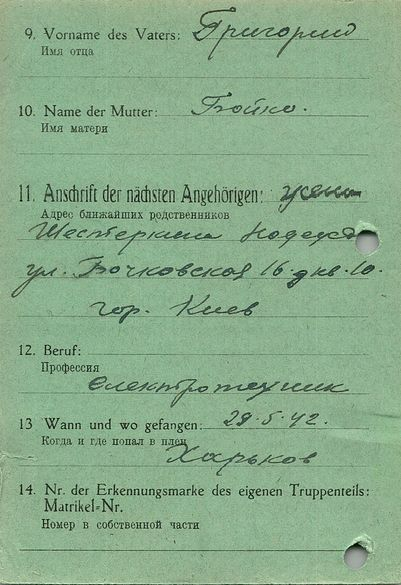 9. Vorname des Vaters: Григорий
Имя отца
10. Name der Mutter: Бойко.
Имя матери
11. Anschrift der nächsten Angehörigen: жена
Адрес ближайших родственников
Шестеркина
ул. Бочковская 16. кв. 10.
гор. Киев
12. Beruf:
Профессия
електротехник
13 Wann und wo gefangen: 29.5.42.
Когда и где попал в плен
Харьков
14. Nr. der Erkennungsmarke des eigenen Truppenteils:
Matrikel-Nr.
Номер в собственной части